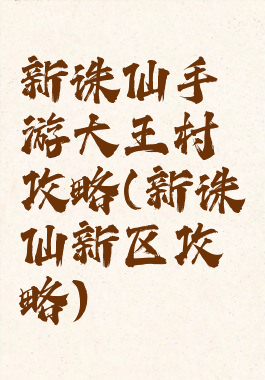 新诛仙手
游大王村
攻略(新诛
仙新区攻
略)